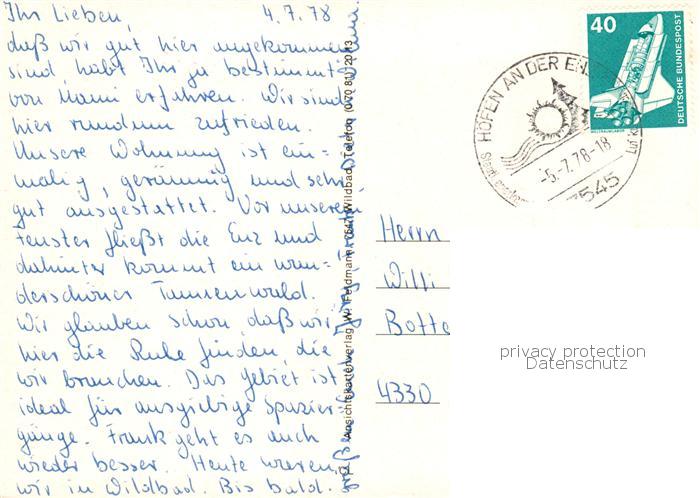 Ihr Lieben, 4.7.78
daß wir gut hier angekommen
sind, habt Ihr ja bestimmt
von Mami erfahren. Wir sind
hier rundum zufrieden.
Unsere Wohnung ist ein-
malig, geräumig und sehr
gut ausgestattet. Vor unserem
Fenster fließt die Enz und
dahinter kommt ein wun-
derschöner Tannenwald.
Wir glauben schon, daß wir
hier die Ruhe finden, die
wir brauchen. Das Gebiet ist
ideal für ausgiebige Spazier-
gänge. Frank geht es auch
wieder besser. Heute waren
wir in Wildbad. Bis bald.
Ansichtskartenverlag W. Feldmann, 7547 Wildbad, Telefon (0 70 81)
40
DEUTSCHE BUNDESPOST
WELTRAUMLABOR
HÖFEN AN DER ENZ
-5.-7.78-18
7545
Herrn
Willi
Botte
4330
privacy protection
Datenschutz